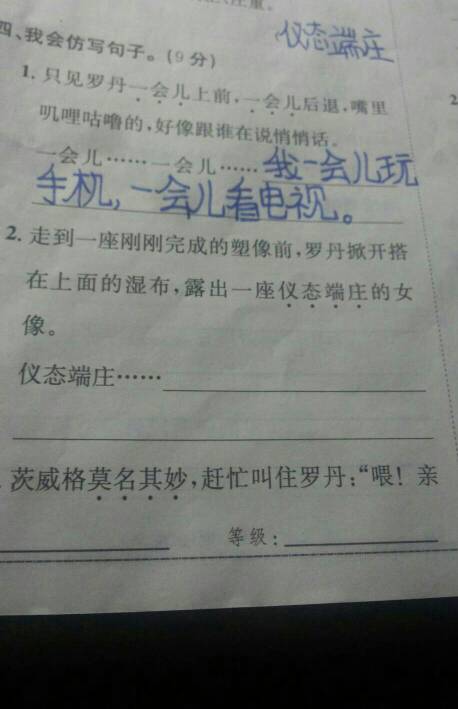 仪态端庄
四、我会仿写句子。(9分)
1. 只见罗丹一会儿上前,一会儿后退,嘴里
叽哩咕噜的,好像跟谁在说悄悄话。
一会儿……一会儿……我一会儿玩
手机,一会儿看电视。
2. 走到一座刚刚完成的塑像前,罗丹掀开搭
在上面的湿布,露出一座仪态端庄的女
像。
仪态端庄……
茨威格莫名其妙,赶忙叫住罗丹:“喂!亲
等级: